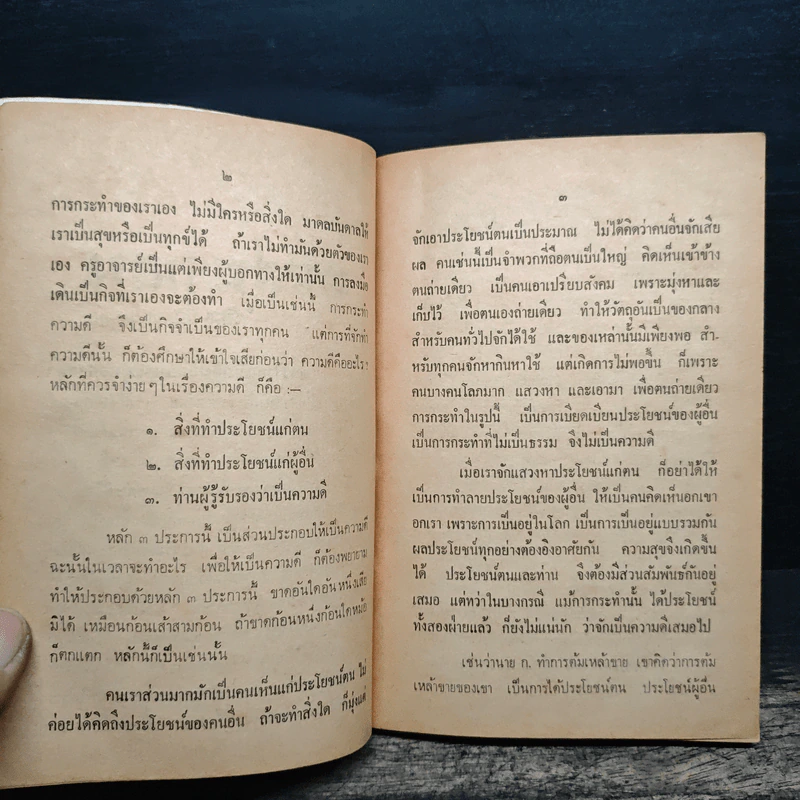 ๒
การกระทำของเราเอง ไม่มีใครหรือสิ่งใด มาดลบันดาลให้
เราเป็นสุขหรือเป็นทุกข์ได้ ถ้าเราไม่ทำมันด้วยตัวของเรา
เอง ครูอาจารย์เป็นแต่เพียงผู้บอกทางให้เท่านั้น การลงมือ
เดินเป็นกิจที่เราเองจะต้องทำ เมื่อเป็นเช่นนี้ การกระทำ
ความดี จึงเป็นกิจจำเป็นของเราทุกคน แต่การที่จักทำ
ความดีนั้น ก็ต้องศึกษาให้เข้าใจเสียก่อนว่า ความดีคืออะไร?
หลักที่ควรจำง่าย ๆ ในเรื่องความดี ก็คือ :—
๑. สิ่งที่ทำประโยชน์แก่ตน
๒. สิ่งที่ทำประโยชน์แก่ผู้อื่น
๓. ท่านผู้รู้รับรองว่าเป็นความดี
หลัก ๓ ประการนี้ เป็นส่วนประกอบให้เป็นความดี
ฉะนั้นในเวลาจะทำอะไร เพื่อให้เป็นความดี ก็ต้องพยายาม
ทำให้ประกอบด้วยหลัก ๓ ประการนี้ ขาดอันใดอันหนึ่งเสีย
มิได้ เหมือนก้อนเส้าสามก้อน ถ้าขาดก้อนหนึ่งก้อนใดหม้อ
ก็ตกแตก หลักนี้ก็เป็นเช่นนั้น
คนเราส่วนมากมักเป็นคนเห็นแก่ประโยชน์ตน ไม่
ค่อยได้คิดถึงประโยชน์ของคนอื่น ถ้าจะทำสิ่งใด ก็มุ่งแต่
๓
จักเอาประโยชน์ตนเป็นประมาณ ไม่ได้คิดว่าคนอื่นจักเสีย
ผล คนเช่นนี้เป็นจำพวกที่ถือตนเป็นใหญ่ คิดเห็นเข้าข้าง
ตนถ่ายเดียว เป็นคนเอาเปรียบสังคม เพราะมุ่งหาและ
เก็บไว้ เพื่อตนเองถ่ายเดียว ทำให้วัตถุอันเป็นของกลาง
สำหรับคนทั่วไปจักได้ใช้ และของเหล่านั้นมีเพียงพอ สำ-
หรับทุกคนจักหากินหาใช้ แต่เกิดการไม่พอขึ้น ก็เพราะ
คนบางคนโลภมาก แสวงหา และเอามา เพื่อตนถ่ายเดียว
การกระทำในรูปนี้ เป็นการเบียดเบียนประโยชน์ของผู้อื่น
เป็นการกระทำที่ไม่เป็นธรรม จึงไม่เป็นความดี
เมื่อเราจักแสวงหาประโยชน์แก่ตน ก็อย่าได้ให้
เป็นการทำลายประโยชน์ของผู้อื่น ให้เป็นคนคิดเห็นอกเขา
อกเรา เพราะการเป็นอยู่ในโลก เป็นการเป็นอยู่แบบรวมกัน
ผลประโยชน์ทุกอย่างต้องอิงอาศัยกัน ความสุขจึงเกิดขึ้น
ได้ ประโยชน์ตนและท่าน จึงต้องมีส่วนสัมพันธ์กันอยู่
เสมอ แต่ทว่าในบางกรณี แม้การกระทำนั้น ได้ประโยชน์
ทั้งสองฝ่ายแล้ว ก็ยังไม่แน่นัก ว่าจักเป็นความดีเสมอไป
เช่นว่านาย ก. ทำการต้มเหล้าขาย เขาคิดว่าการต้ม
เหล้าขายของเขา เป็นการได้ประโยชน์ตน ประโยชน์ผู้อื่น